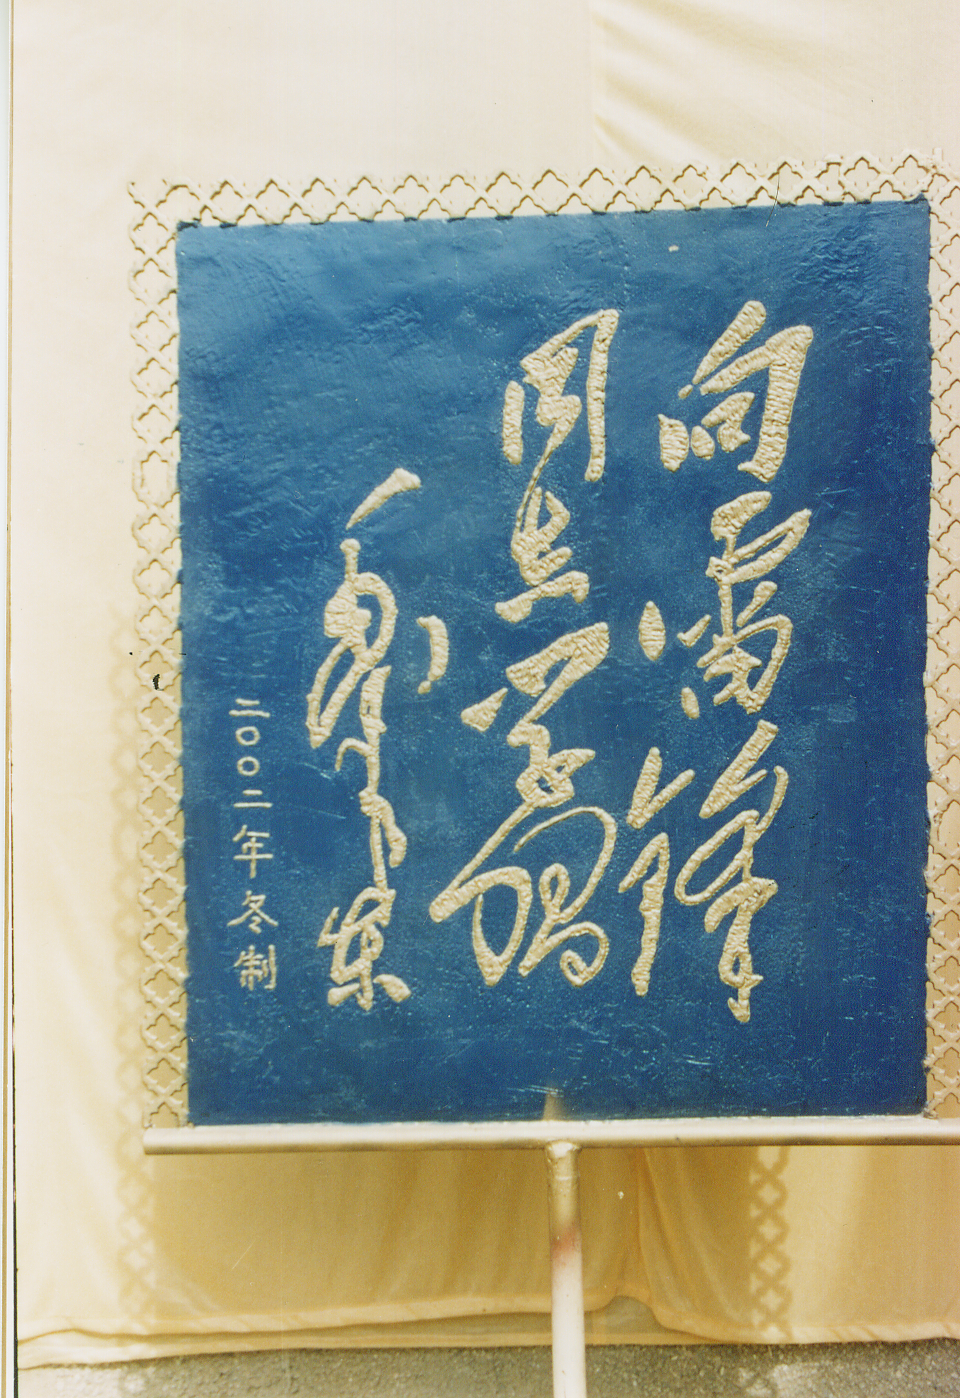 向雷锋
同志学习
毛泽东
二〇〇二年冬制